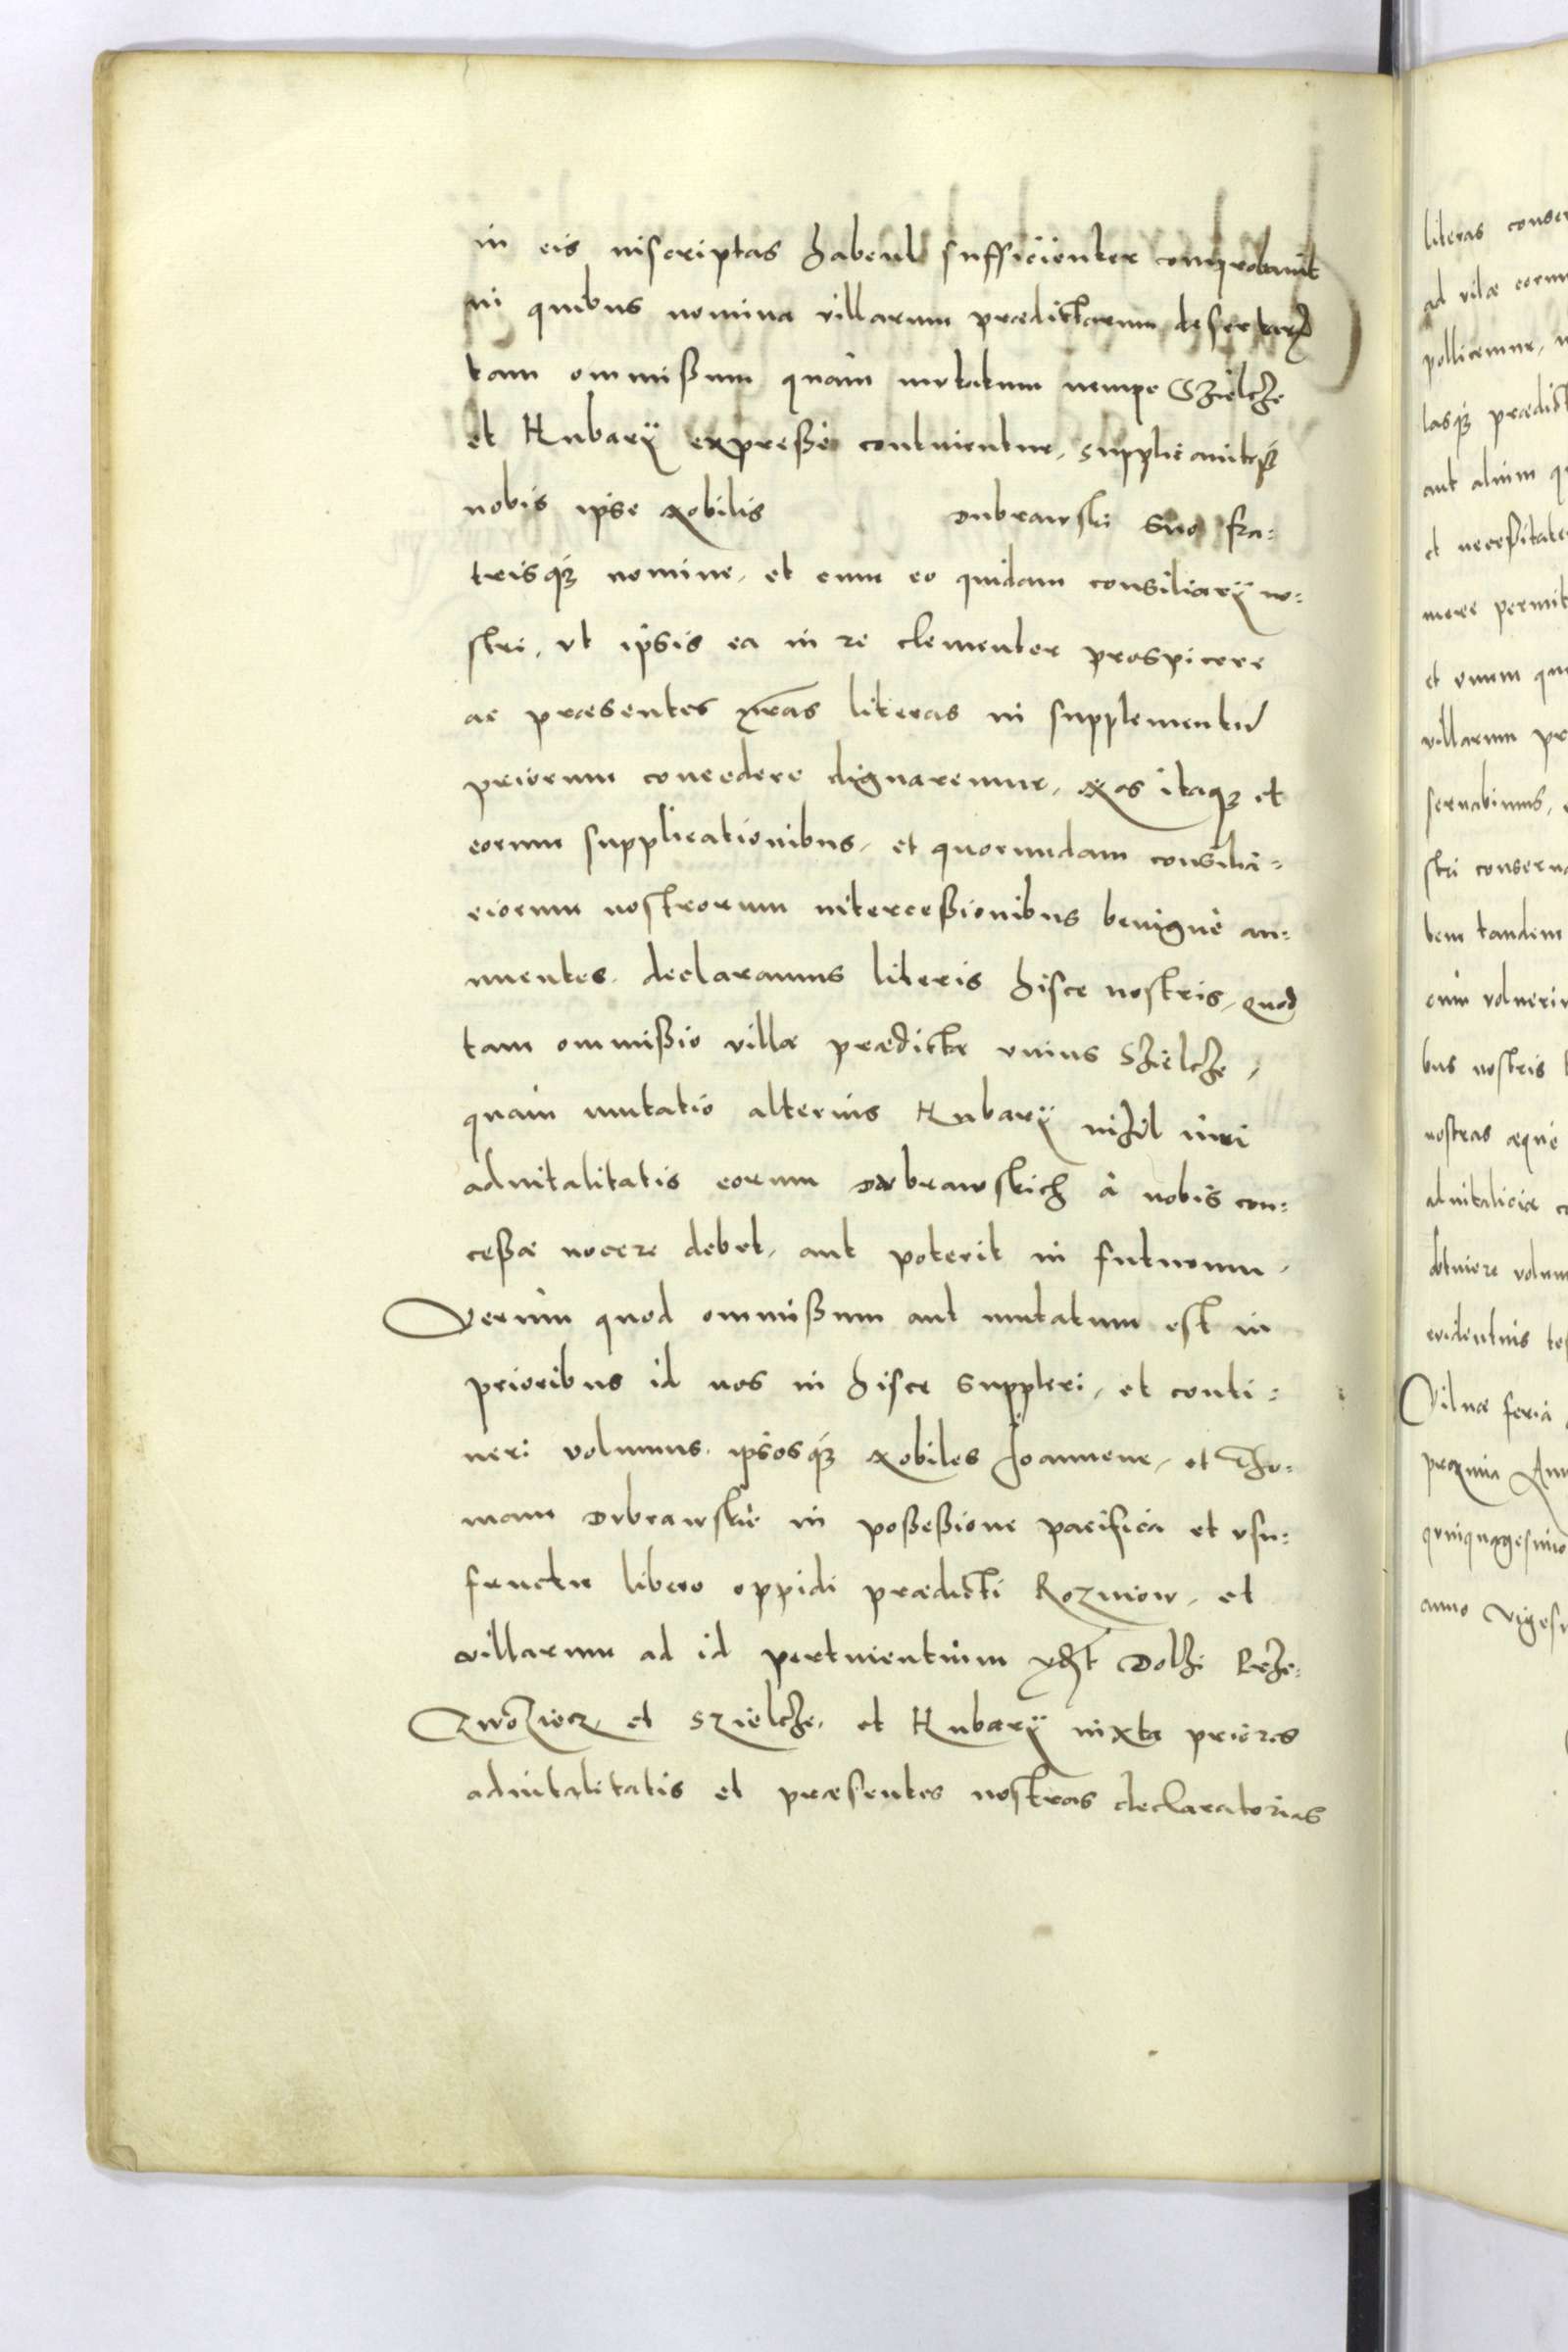 in eis inscriptas habent sufficienter comprobauit
in quibus nomina villarum prædictarum desertarum
tam ommißum quàm mutatum nempe Szielche
et Kubarÿ expreßè continentur, supplicauitqß
nobis ipse Nobilis Dubrawski suo fra-
trisqß nomine, et cum eo quidam consiliarÿ no-
stri, vt ipsis ea in re clementer prospicere
ac præsentes nras literas in supplementũ
priorum concedere dignaremur, Nos itaqß et
eorum supplicationibus, et quorundam consilia-
riorum nostrorum interceßionibus benignè an-
nuentes, declaramus literis hisce nostris, quod
tam ommißio villæ prædictæ vnius Szielche,
quàm mutatio alterius Kubarÿ nihil iuri
aduitalitatis eorum Dubrawskich à nobis con-
ceßæ nocere debet, aut poterit in futurum,
Verùm quod ommißum aut mutatum est in
prioribus id nos in hisce suppleri, et conti-
neri volumus, ipsosqß Nobiles Joannem, et Tho-
mam Dubrawskie in poßeßione pacifica et vsu-
fructu libero oppidi prædicti Rozniow, et
villarum ad id pertinentium vdt Dolhi
et Szielche, et Kubarÿ iuxta priores
aduitalitatis et præsentes nostras declaratorias
literas
ad vitæ
pollicemur,
lasqß
aut alium
et neceßitate
mere
et vnum
villarum
seruabimus,
stri
bem tandem
cum
bus nostris
nostras æquè
aduitaliciæ
obtinere
euidentius
Vilnæ feria
proxima
quinquagesimo
anno